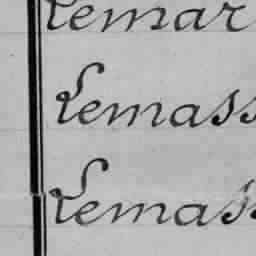 Lemar
Lemass
Lemass